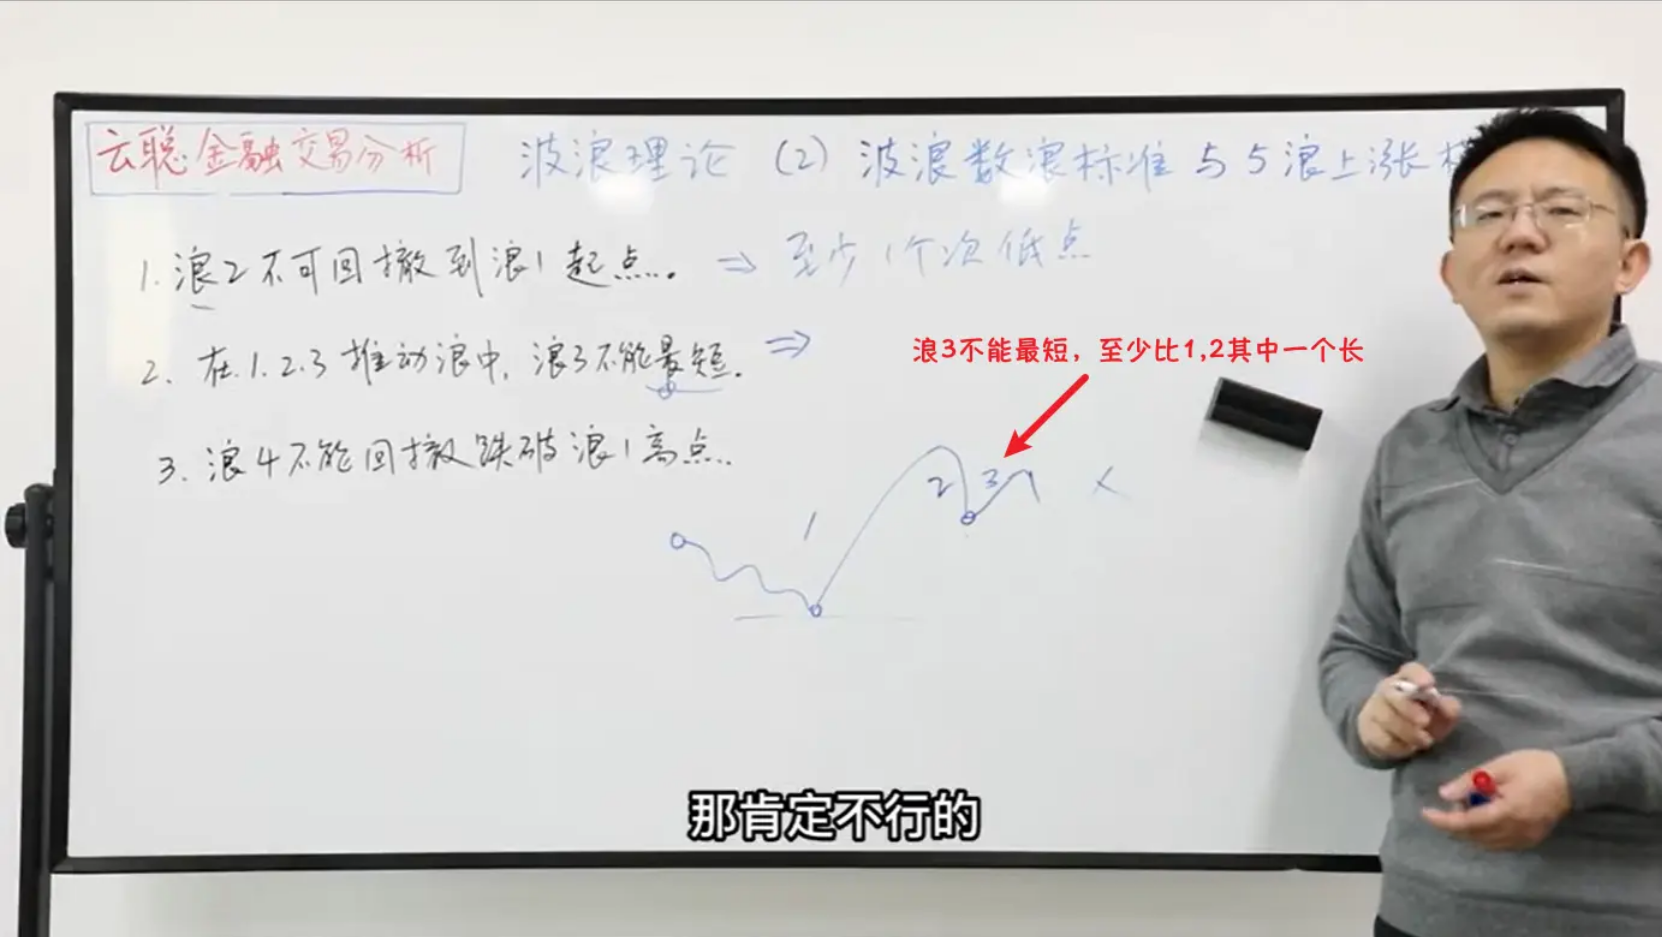 云聪金融交易分析
波浪理论(2)波浪数浪标准与5浪上涨
1. 浪2不可回撤到浪1起点. ⇒ 至少1个次低点
2. 在1.2.3推动浪中, 浪3不能最短. ⇒
浪3不能最短，至少比1,2其中一个长
3. 浪4不能回撤跌破浪1高点.
1
2
3
×
那肯定不行的